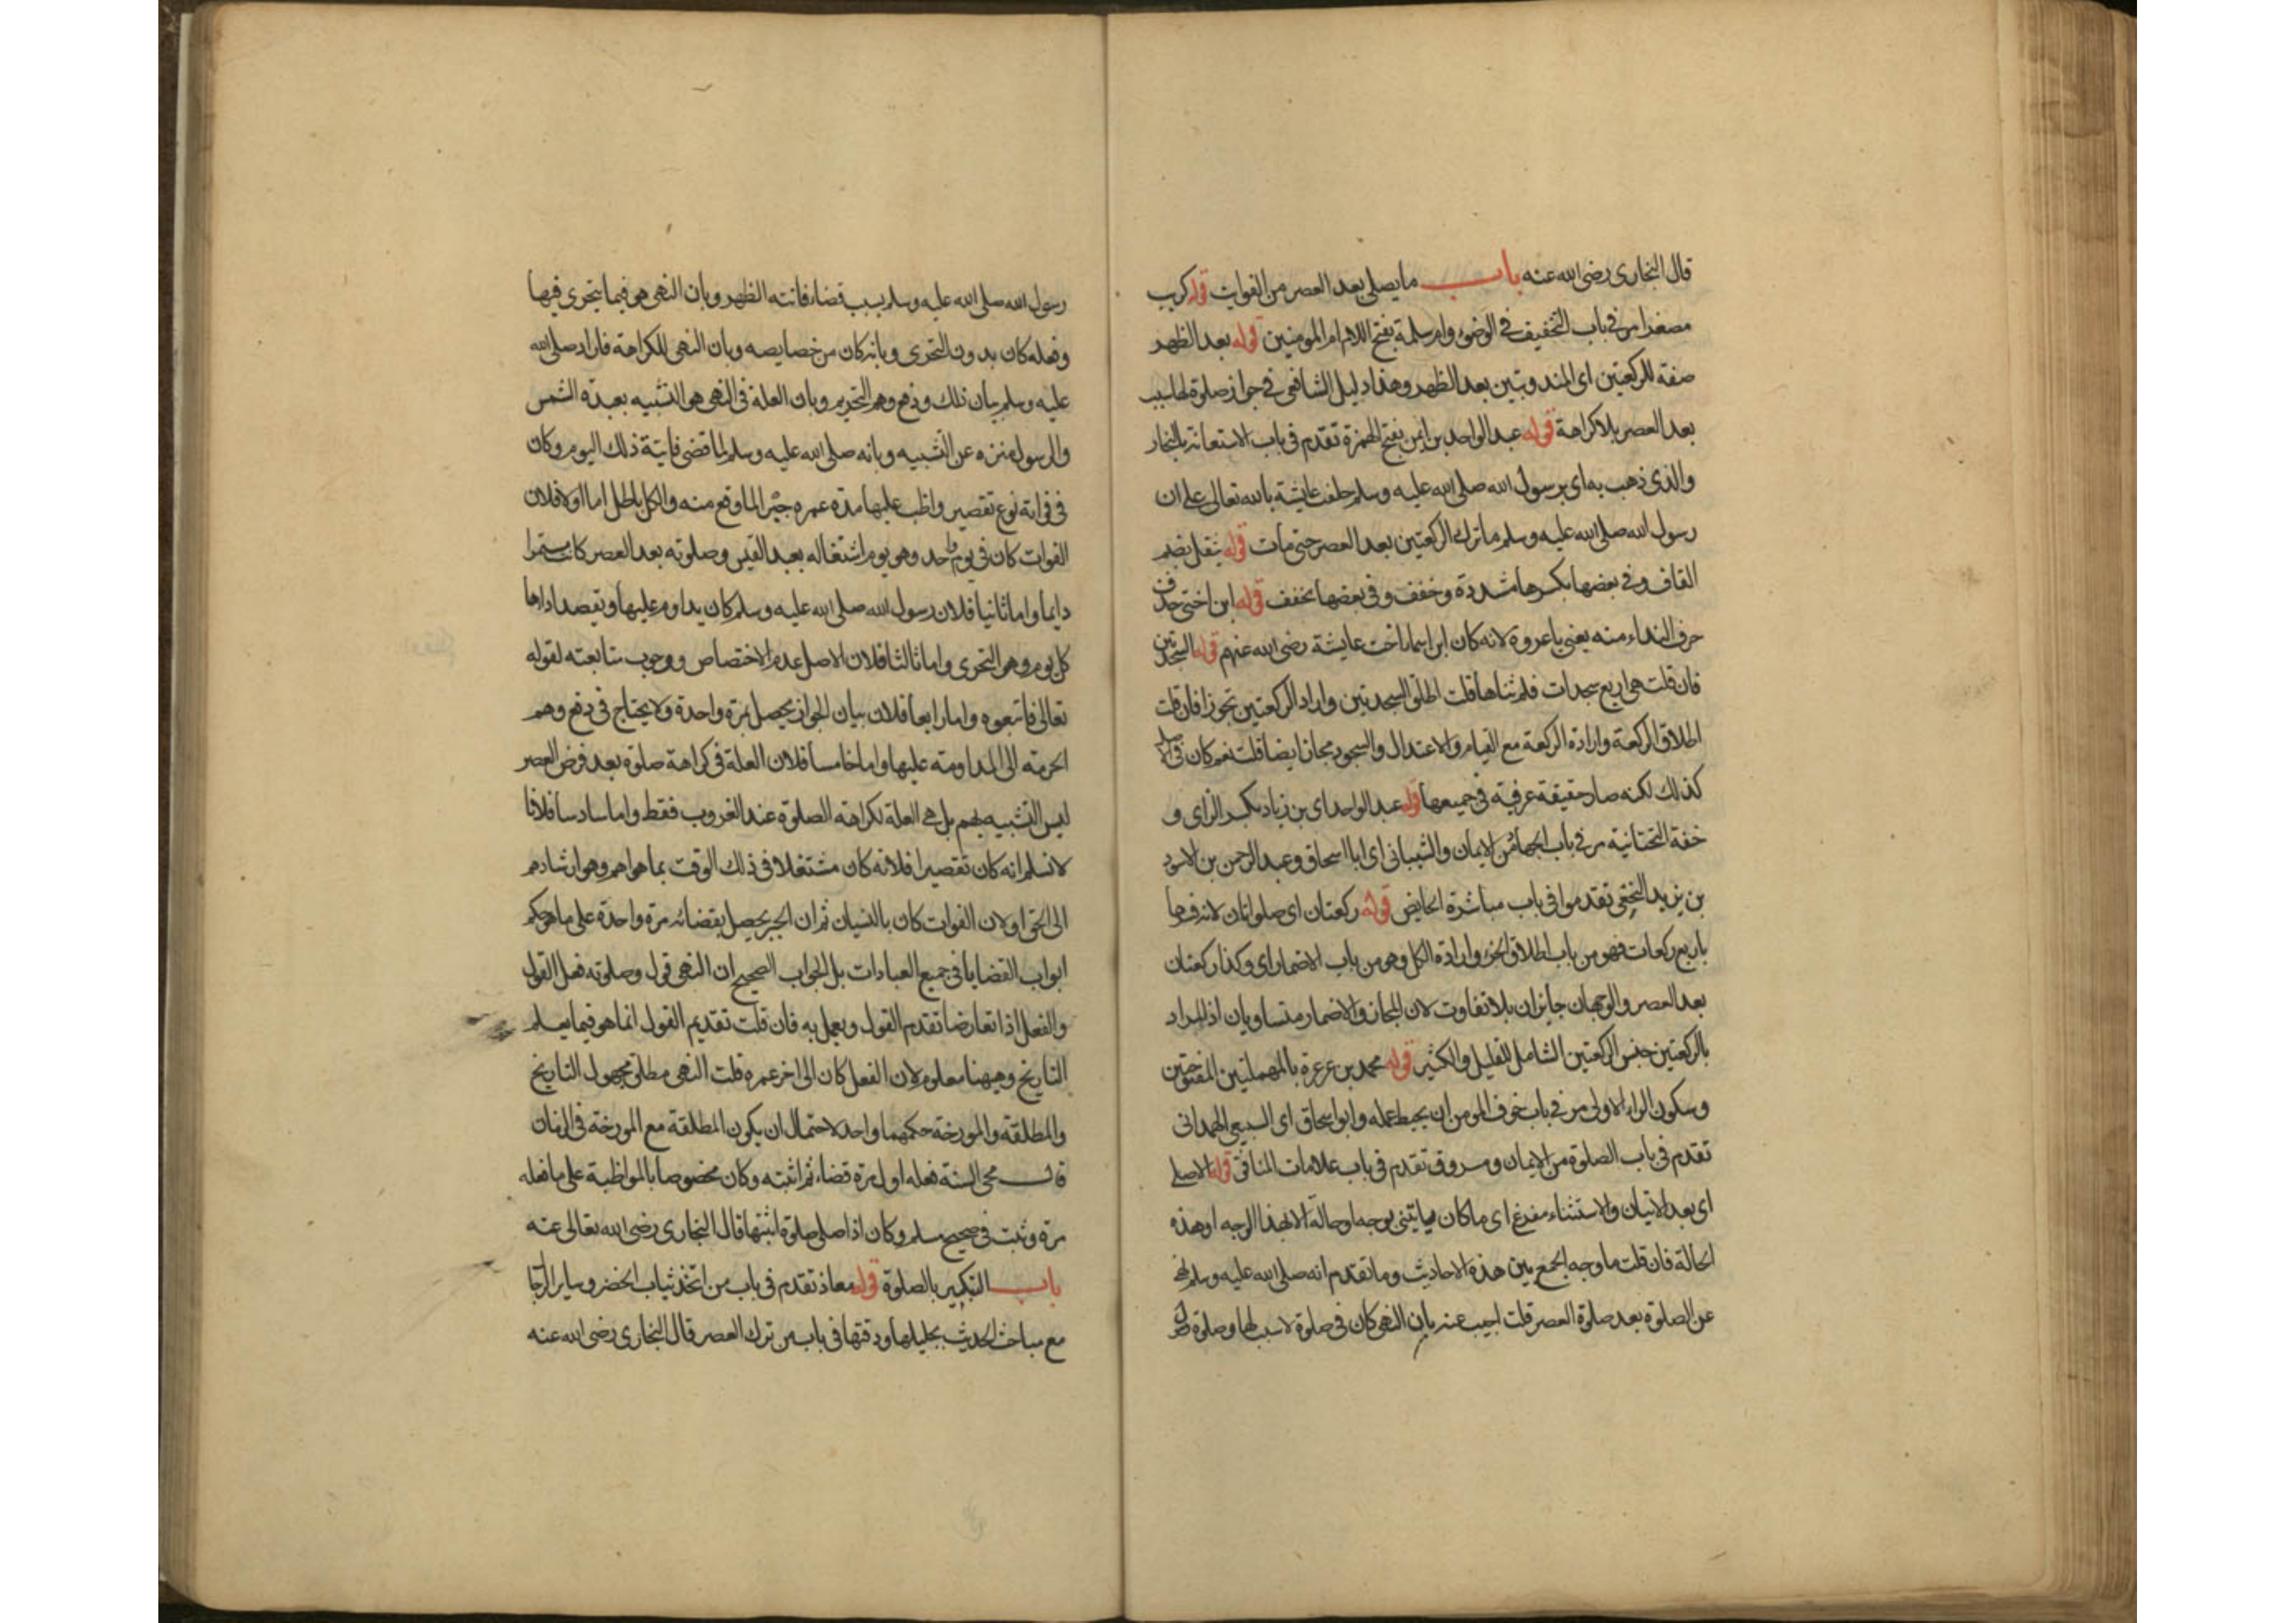 قال البخارى رضى الله عنه باب ما يصلى بعد العصر من الفوايت قوله كريب
مصغرا مر فى باب التخفيف فى الوضوء وام سلمة بفتح اللام ام المومنين قوله بعد الظهر
صفة للركعتين اى المندوبتين بعد الظهر وهذا دليل الشافعى فى جواز صلوة لها سبب
بعد العصر بلا كراهة قوله عبد الواحد بن ايمن بفتح الهمزة تقدم فى باب الاستعانة بالنجار
والذى ذهب به اى برسول الله صلى الله عليه وسلم حلفت عايشة بالله تعالى على ان
رسول الله صلى الله عليه وسلم ما ترك الركعتين بعد العصر حتى مات قوله يثقل بضم
القاف وفى بعضها بكسرها مشددة وخفف وفى بعضها يخفف قوله ابن اختى حذف
حرف النداء منه يعنى يا عروة لانه كان ابن اسما اخت عايشة رضى الله عنهم قوله السجدتين
فان قلت هى اربع سجدات فلم ثناها قلت اطلق السجدتين واراد الركعتين تجوزا فان قلت
اطلاق الركعة وارادة الركعة مع القيام والاعتدال والسجود مجاز ايضا قلت نعم كان فى الاصل
كذلك لكنه صار حقيقة عرفية فى جميعها قوله عبد الواحد اى بن زياد بكسر الزاى و
خفة التحتانية مر فى باب الجهاد من الايمان والشيبانى اى ابا اسحاق وعبد الرحمن بن الاسود
بن يزيد النخعى تقدموا فى باب مباشرة الحايض قوله ركعتان اى صلواتان لانه فسرها
باربع ركعات فهو من باب اطلاق الجزء وارادة الكل وهو من باب الاضمار اى وكذا ركعتان
بعد العصر والوجهان جايزان بلا تفاوت لان المجاز والاضمار متساويان اذ المراد
بالركعتين جنس الركعتين الشامل للقليل والكثير قوله محمد بن عرعرة بالمهملتين المفتوحتين
وسكون الراء الاولى مر فى باب خوف المومن ان يحبط عمله وابو اسحاق اى السبيعى الهمدانى
تقدم فى باب الصلوة من الايمان ومسروق تقدم فى باب علامات المنافق قوله الا صلى
اى بعد الاتيان والاستثناء مفرغ اى ما كان ياتينى بوجه او حالة الا بهذا الوجه او هذه
الحالة فان قلت ما وجه الجمع بين هذه الاحاديث وما تقدم انه صلى الله عليه وسلم نهى
عن الصلوة بعد صلوة العصر قلت اجيب عنه بان النهى كان فى صلوة لا سبب لها وصلوة
رسول الله صلى الله عليه وسلم بسبب قضاء فائته الظهر وبان النهى هو فيما يتحرى فيها
وفعله كان بدون التحرى وبانه كان من خصايصه وبان النهى للكراهة فاراد صلى الله
عليه وسلم بيان ذلك ودفع وهم التحريم وبان العلة فى النهى هى التشبيه بعبدة الشمس
والرسول منزه عن التشبيه وبانه صلى الله عليه وسلم لما قضى فايتة ذلك اليوم وكان
فى فواته نوع تقصير واظب عليها مدة عمره جبرا لما وقع منه والكل باطل اما اولا فلان
الفوات كان فى يوم واحد وهو يوم اشتغاله بعبد القيس وصلوته بعد العصر كانت مستمرا
دايما واما ثانيا فلان رسول الله صلى الله عليه وسلم كان يداوم عليها ويقصد اداءها
كل يوم وهو التحرى واما ثالثا فلان الاصل عدم الاختصاص ووجوب متابعته لقوله
تعالى فاتبعوه واما رابعا فلان بيان الجواز يحصل بمرة واحدة ولا يحتاج فى دفع وهم
الحرمة الى المداومة عليها واما خامسا فلان العلة فى كراهة صلوة بعد فرض العصر
ليس التشبيه بهم بل هى العلة لكراهة الصلوة عند الغروب فقط واما سادسا فلانا
لا نسلم انه كان تقصيرا فلانه كان مشتغلا فى ذلك الوقت بما هو اهم وهو ارشادهم
الى الحق او لان الفوات كان بالنسيان ثم ان الجبر يحصل بقضائه مرة واحدة على ما هو حكم
ابواب القضايا فى جميع العبادات بل الجواب الصحيح ان النهى قول وصلوته فعل القول
والفعل اذا تعارضا تقدم القول ويعمل به فان قلت تقديم القول انما هو فيما يعلم
التاريخ وههنا معلوم لان الفعل كان الى اخر عمره قلت النهى مطلق مجهول التاريخ
والمطلقة والمورخة حكمهما واحد لاحتمال ان يكون المطلقة مع المورخة فى الزمان
قال محى السنة فعله اول مرة قضاء ثم اثبته وكان مخصوصا بالمواظبة على ما فعله
مرة وثبت فى صحيح مسلم وكان اذا صلى صلوة اثبتها قال البخارى رضى الله تعالى عنه
باب التبكير بالصلوة قوله معاذ تقدم فى باب من اتخذ ثياب الحيض وساير الرجا
مع مباحث الحديث بجليلها ودقتها فى باب من ترك العصر قال البخارى رضى الله عنه